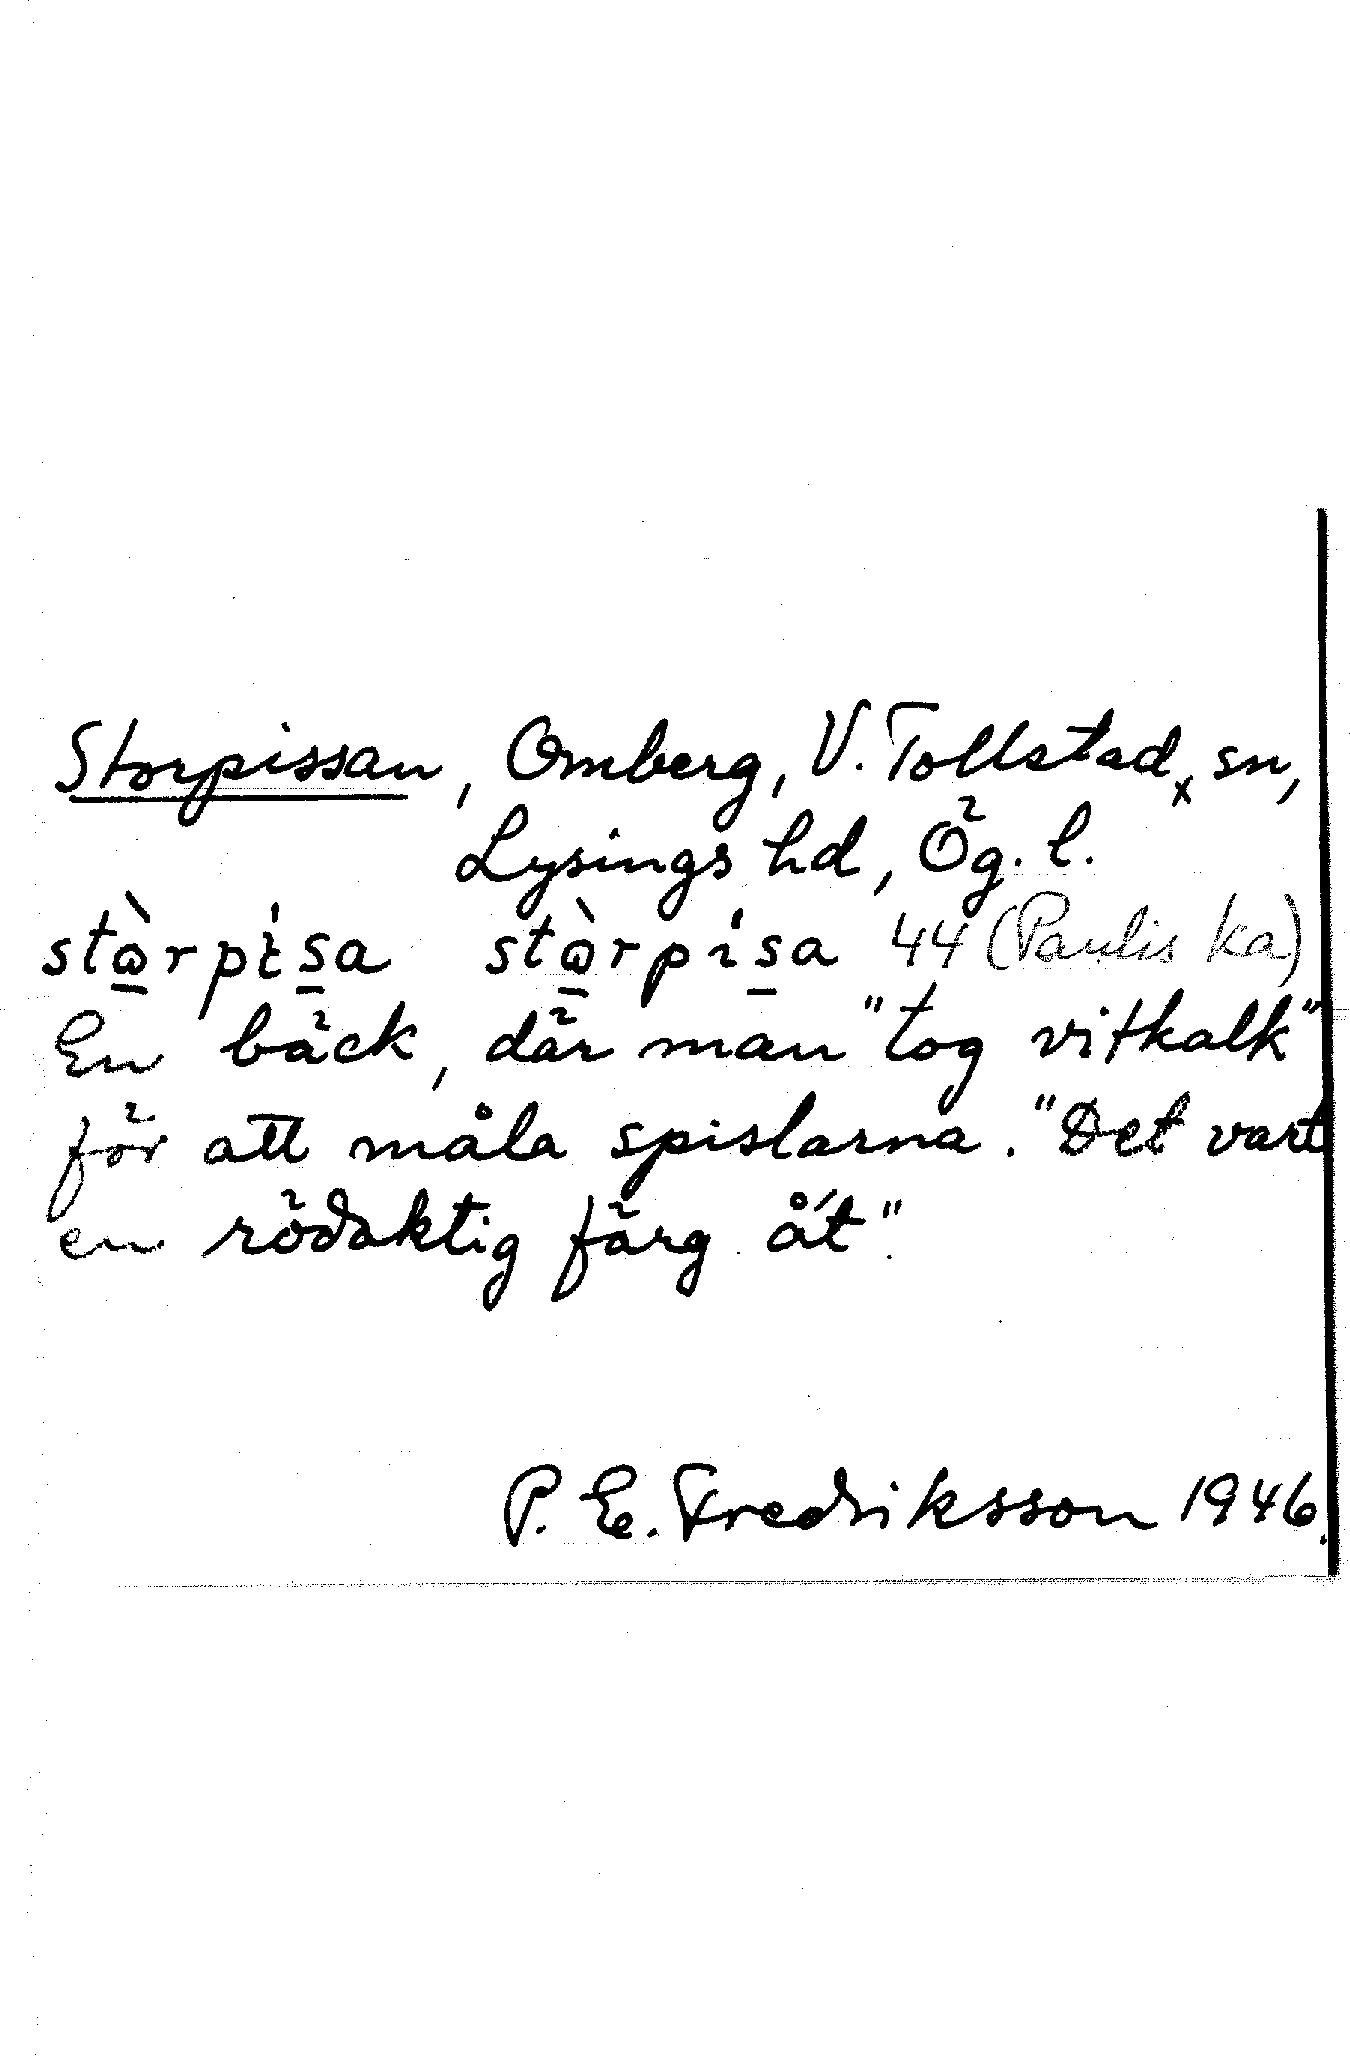 Storpissan, Omberg, V. Tollstad x sn,
Lysings hd, Ög. l.
stɷ̀rpísa stɷ̀rpísa 44 (Paulis ka)
En bäck, där man "tog vitkalk"
för att måla spislarna. "Det vart
en rödaktig färg åt".
P. E. Fredriksson 1946.